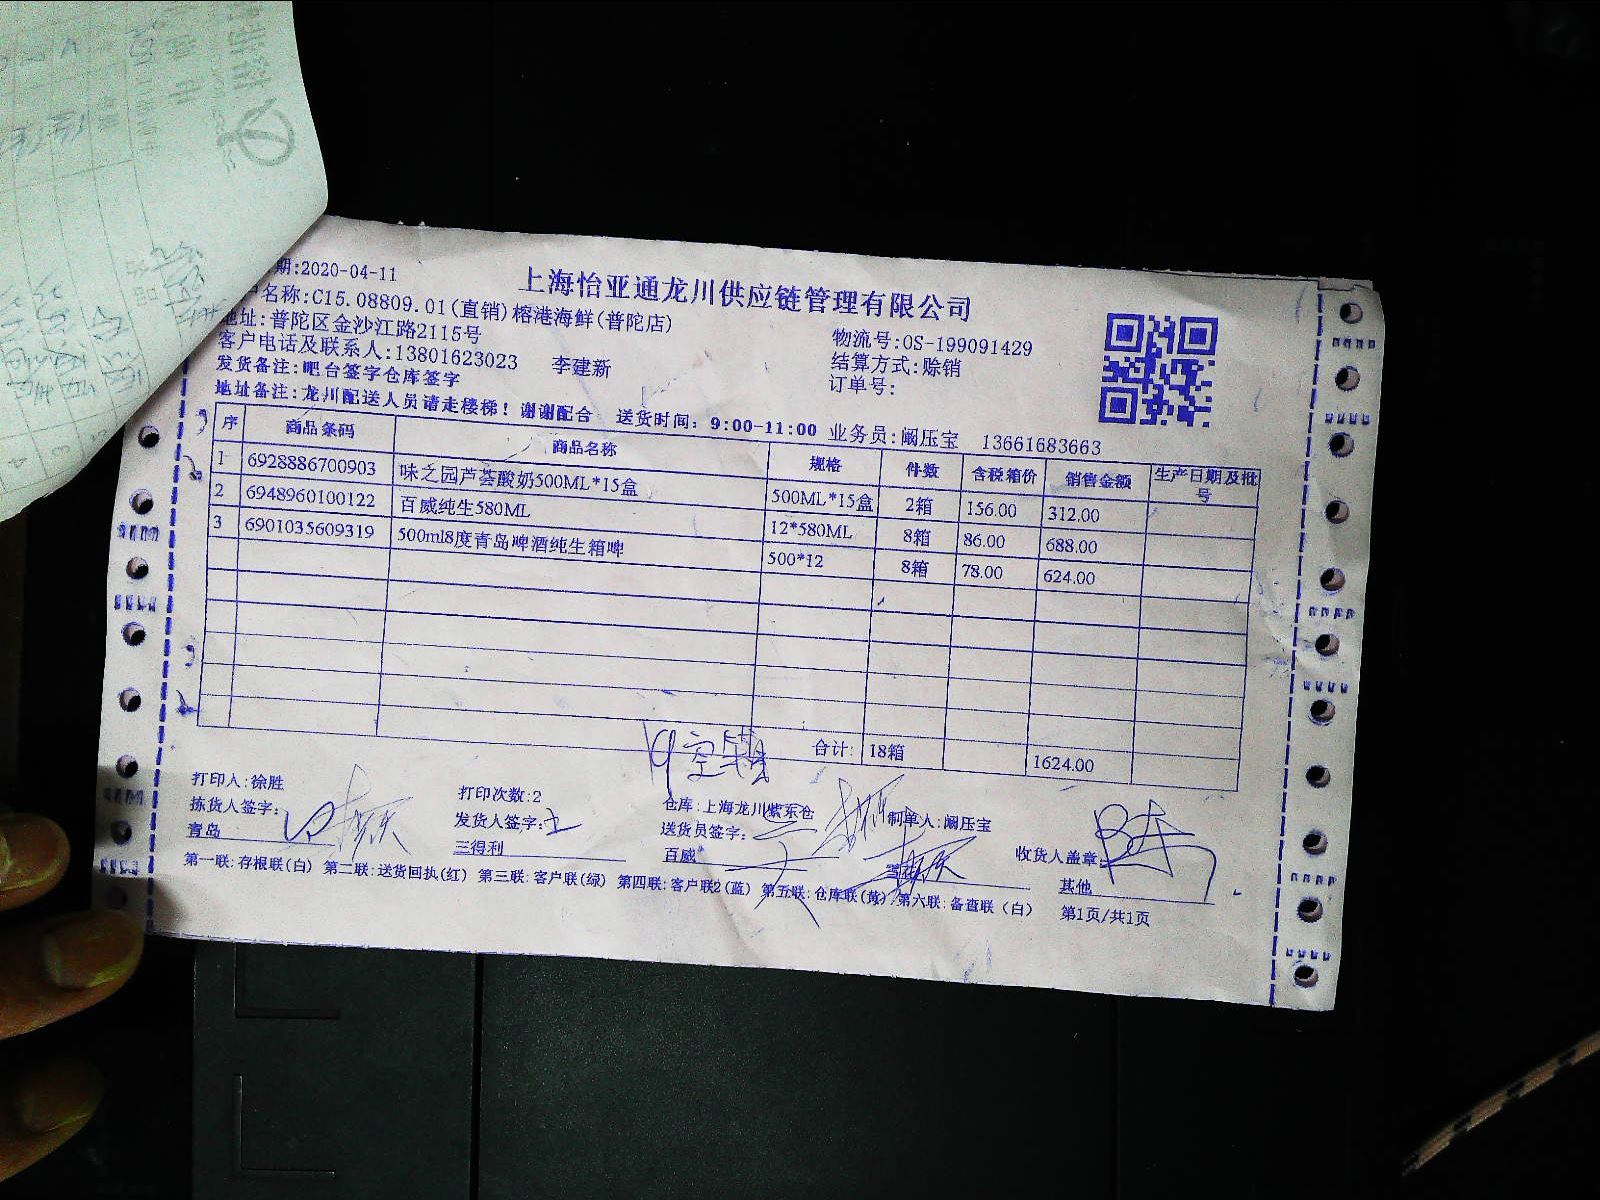 期:2020-04-11
上海怡亚通龙川供应链管理有限公司
户名称:C15.08809.01(直销)榕港海鲜(普陀店)
地址:普陀区金沙江路2115号
物流号:OS-199091429
客户电话及联系人:13801623023 李建新
结算方式:赊销
发货备注:吧台签字仓库签字
订单号:
地址备注:龙川配送人员请走楼梯！谢谢配合 送货时间：9:00-11:00 业务员:阚压宝 13661683663
序 商品条码 商品名称 规格 件数 含税箱价 销售金额 生产日期及批号
1 6928886700903 味之园芦荟酸奶500ML*15盒 500ML*15盒 2箱 156.00 312.00
2 6948960100122 百威纯生580ML 12*580ML 8箱 86.00 688.00
3 6901035609319 500ml8度青岛啤酒纯生箱啤 500*12 8箱 78.00 624.00
合计: 18箱 1624.00
打印人:徐胜 打印次数:2 仓库:上海龙川紫东仓 制单人:阚压宝
拣货人签字: 发货人签字: 送货员签字: 收货人盖章:
青岛 三得利 百威 雪花 其他
第一联:存根联(白) 第二联:送货回执(红) 第三联:客户联(绿) 第四联:客户联2(蓝) 第五联:仓库联(黄) 第六联:备查联（白） 第1页/共1页